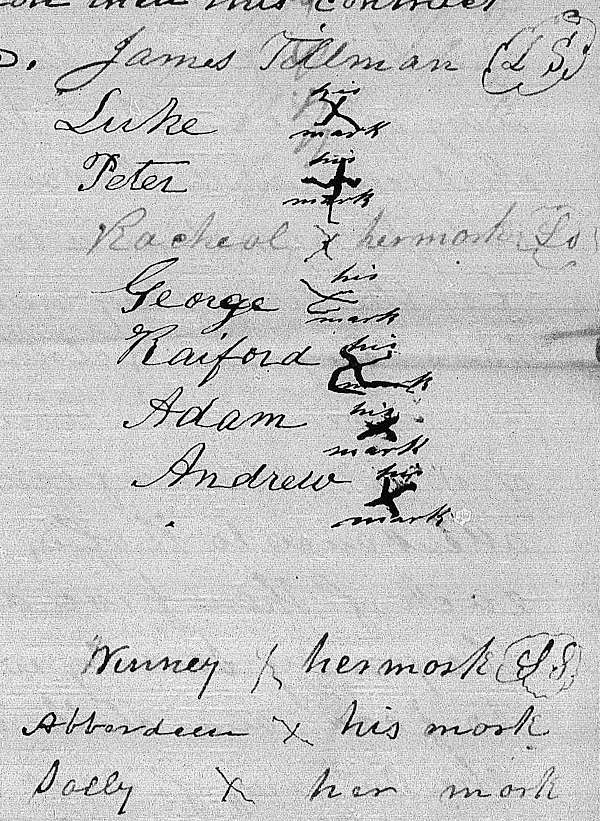 this contract
James Tillman L S
Luke his X mark
Peter his X mark
Racheal X her mork Ls
George his mark
Raiford his mark
Adam his X mark
Andrew his X mark
Winney X her mork L S
Abberdeen X his mork
Solly X her mork